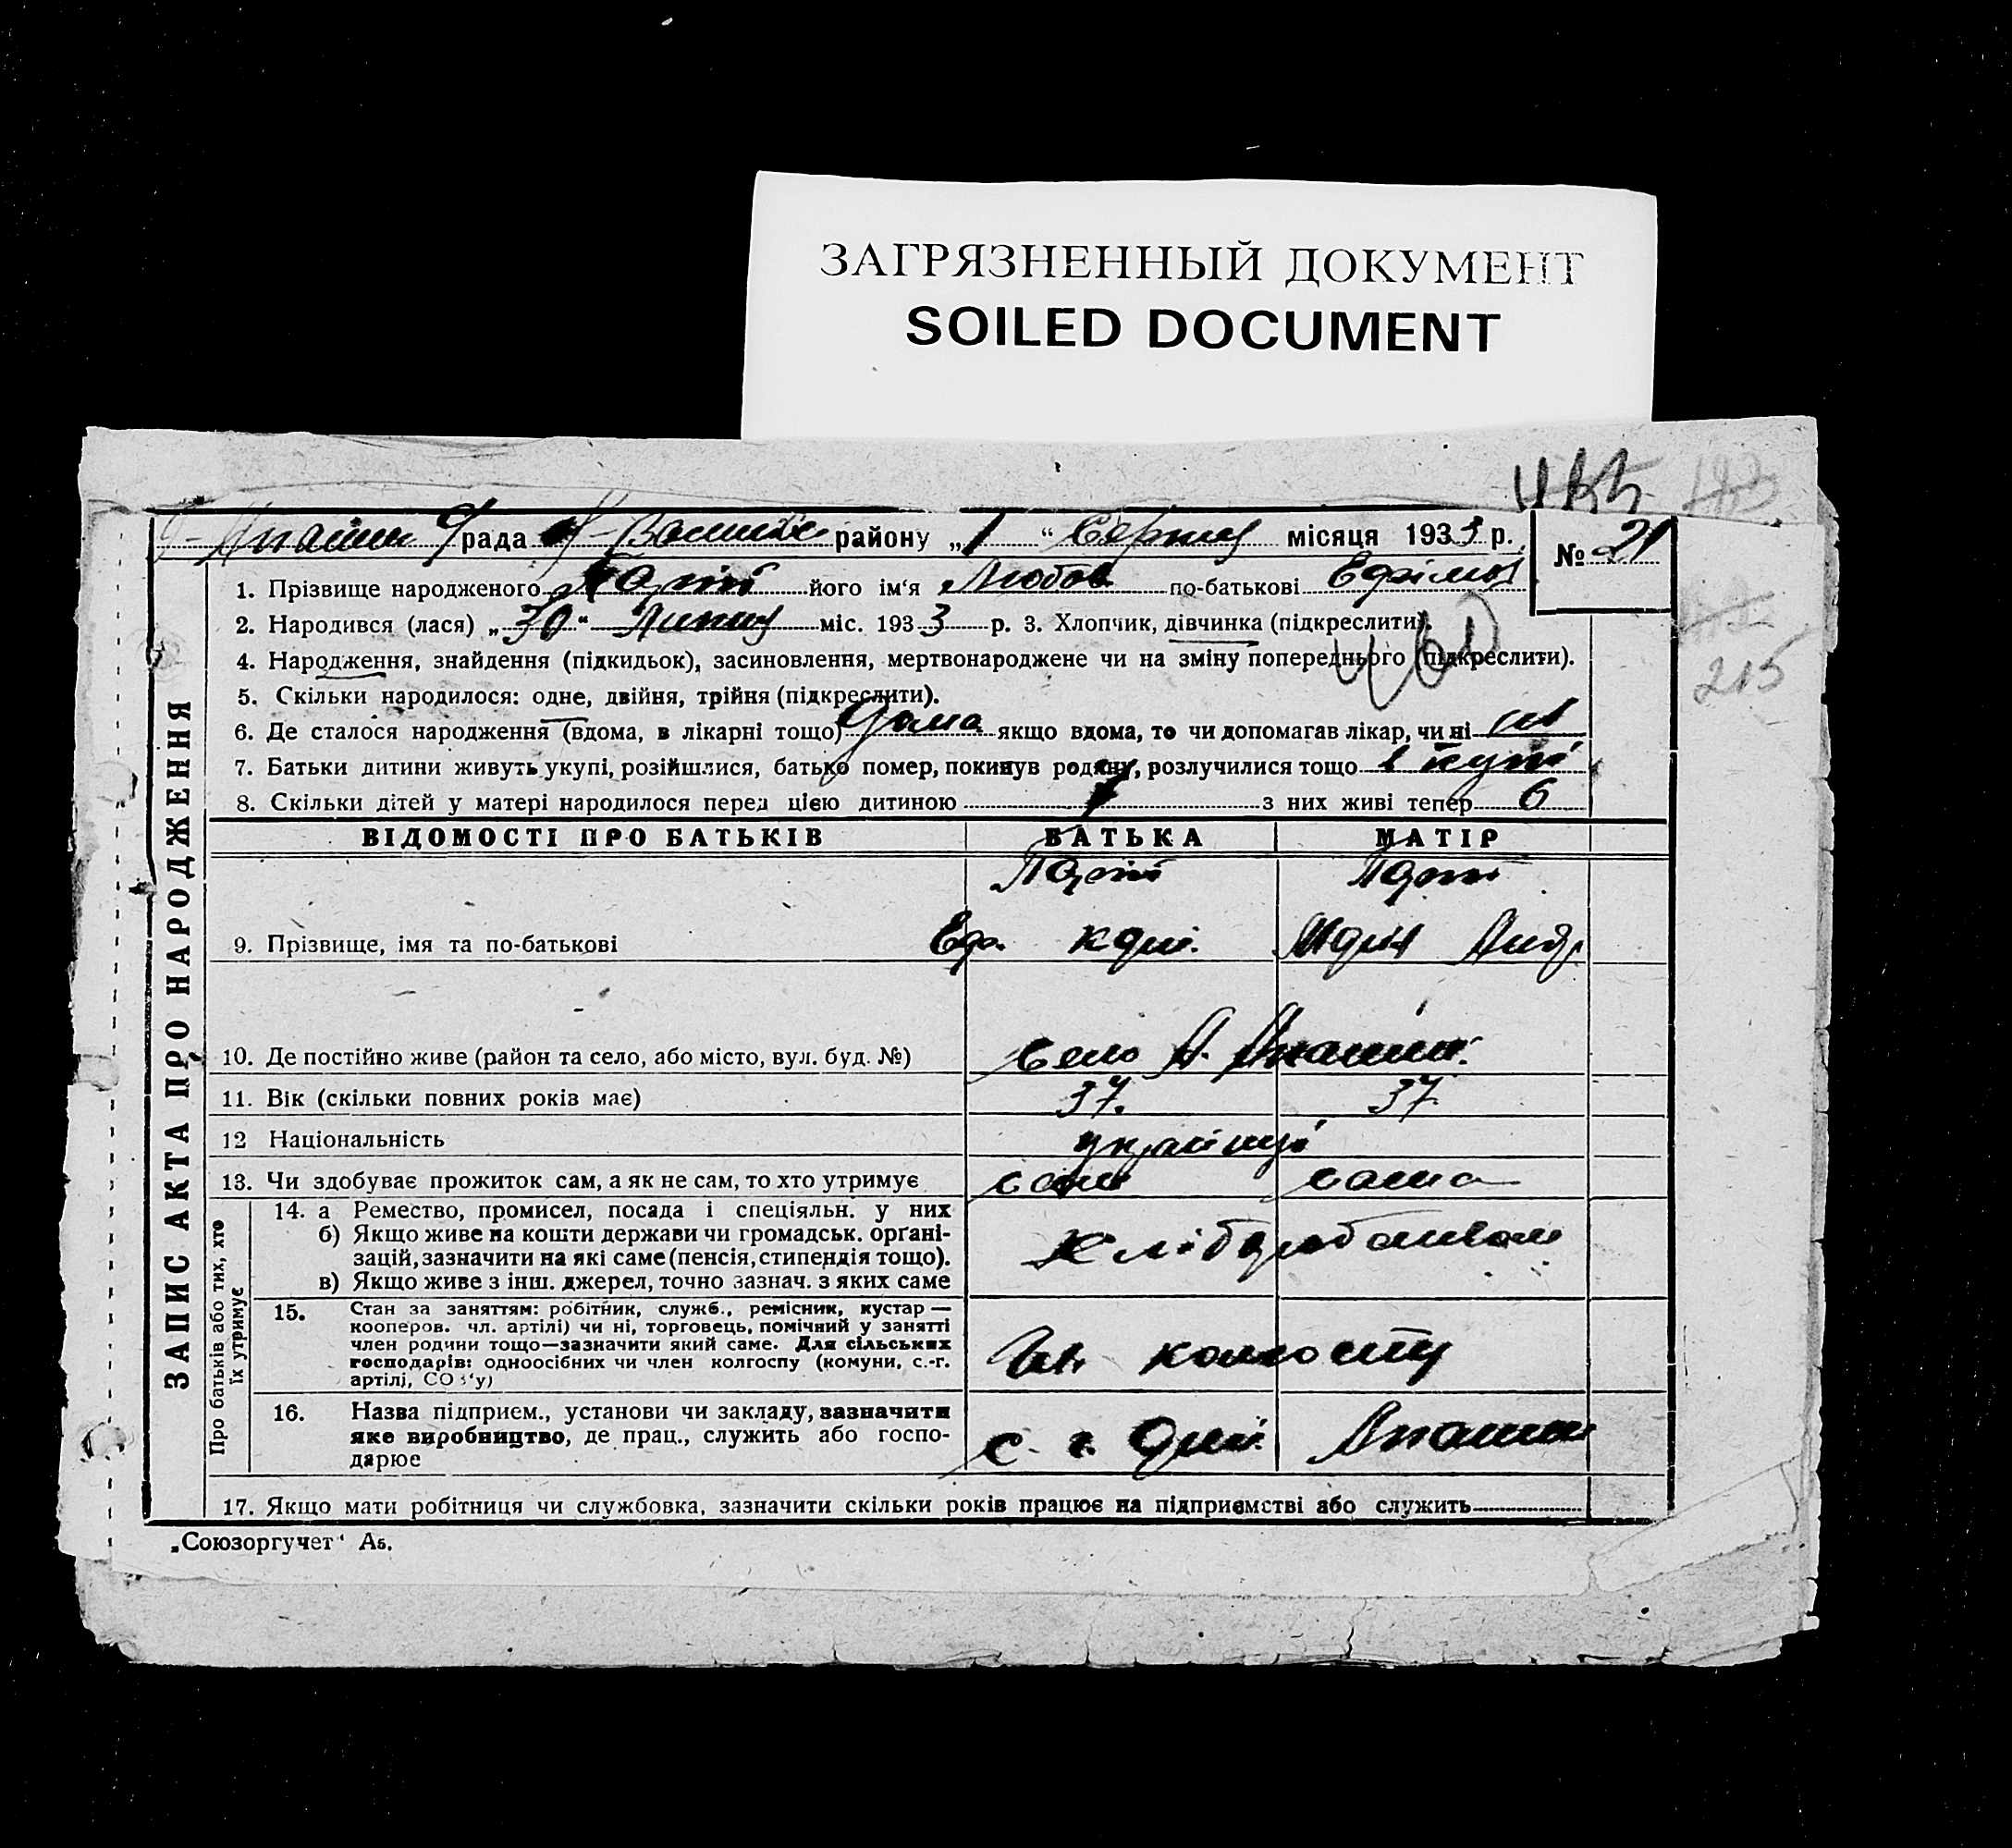 ЗАГРЯЗНЕННЫЙ ДОКУМЕНТ
SOILED DOCUMENT
рада району „1“ Серпня місяця 1933 р.
№ 21
1. Прізвище народженого його ім‘я Любов по-батькові
2. Народився (лася) „30“ Липня міс. 1933 р. 3. Хлопчик, дівчинка (підкреслити).
4. Народження, знайдення (підкидьок), засиновлення, мертвонароджене чи на зміну попереднього (підкреслити).
215
5. Скільки народилося: одне, двійня, трійня (підкреслити).
6. Де сталося народження (вдома, в лікарні тощо) дома якщо вдома, то чи допомагав лікар, чи ні ні
7. Батьки дитини живуть укупі, розійшлися, батько помер, покинув родину, розлучилися тощо в купі
8. Скільки дітей у матері народилося перед цією дитиною 7 з них живі тепер 6
ВІДОМОСТІ ПРО БАТЬКІВ БАТЬКА МАТІР
9. Прізвище, імя та по-батькові
10. Де постійно живе (район та село, або місто, вул. буд. №) Село
11. Вік (скільки повних років має) 37. 37
12 Національність українці
13. Чи здобуває прожиток сам, а як не сам, то хто утримує сам сама
14. а Ремество, промисел, посада і спеціяльн. у них
б) Якщо живе на кошти держави чи громадськ. орґані-
зацій, зазначити на які саме (пенсія, стипендія тощо).
в) Якщо живе з інш. джерел, точно зазнач. з яких саме
15. Стан за заняттям: робітник, служб., ремісник, кустар —
кооперов. чл. артілі) чи ні, торговець, помічний у занятті
член родини тощо—зазначити який саме. Для сільських
господарів: одноосібних чи член колгоспу (комуни, с.-г.
артілі, СОЗ‘у)
Чл. колгоспу
16. Назва підприєм., установи чи закладу, зазначити
яке виробництво, де прац., служить або госпо-
дарює
17. Якщо мати робітниця чи службовка, зазначити скільки років працює на підприємстві або служить
ЗАПИС АКТА ПРО НАРОДЖЕННЯ
Про батьків або тих, хто
їх утримує
„Союзоргучет“ А5.